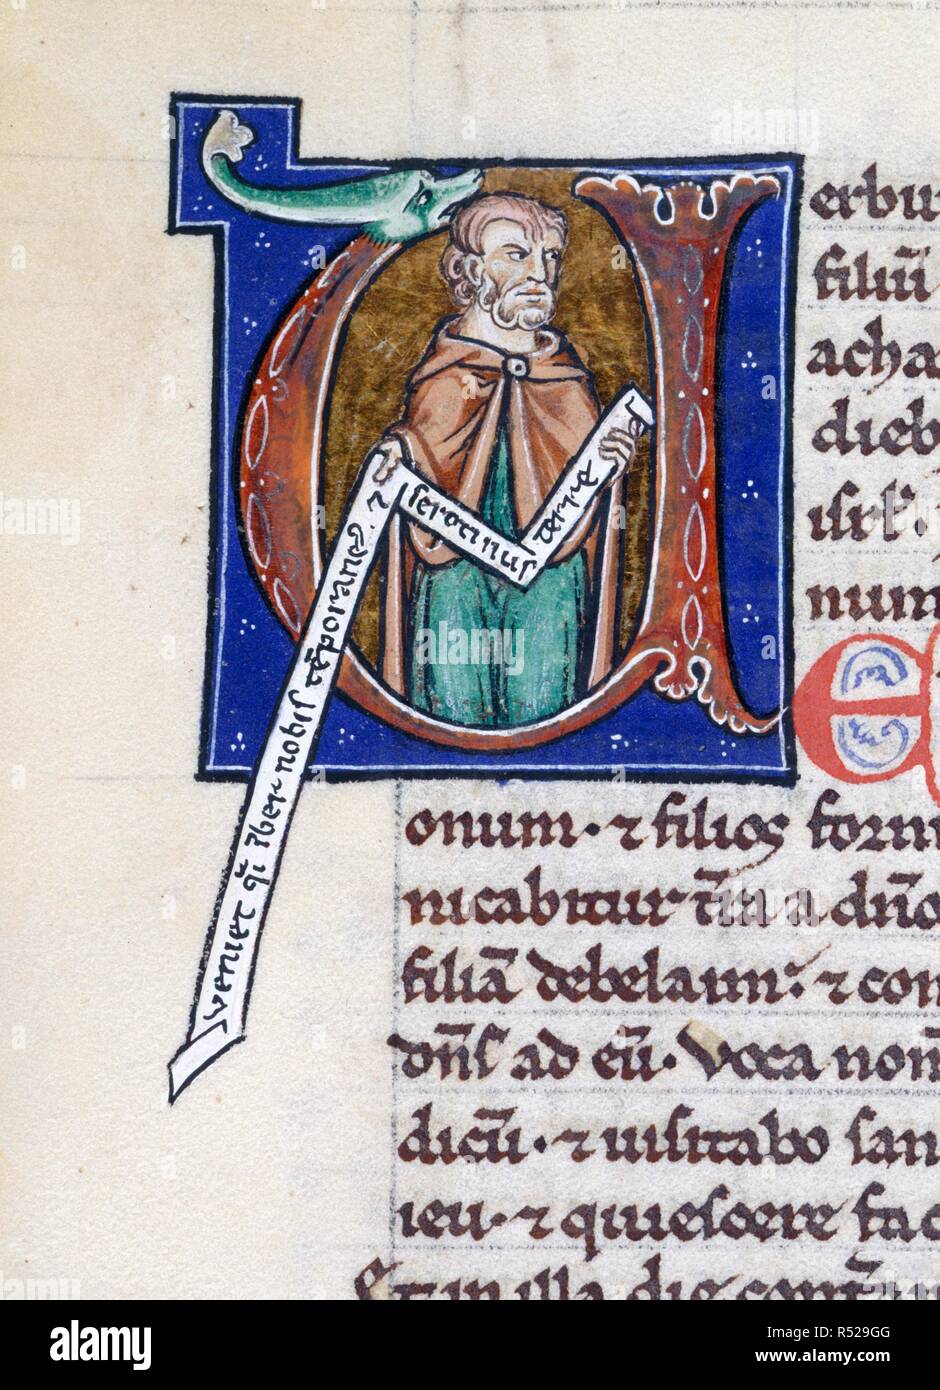 erbu
filiū
acha
dieb
isrł.
num
onum· ⁊ filios forni
nicabitur t̄ra a dño
filiā debelaim: ⁊ con
dñs ad eū. Voca nom̄
dicū· ⁊ uisitabo san
ieu· ⁊ quiescere fac
Et in illa die
veniet qͣi ı̄ber nobis tēporane᷒
⁊ serotinus
terre
alamy
Image ID: R529GG
www.alamy.com